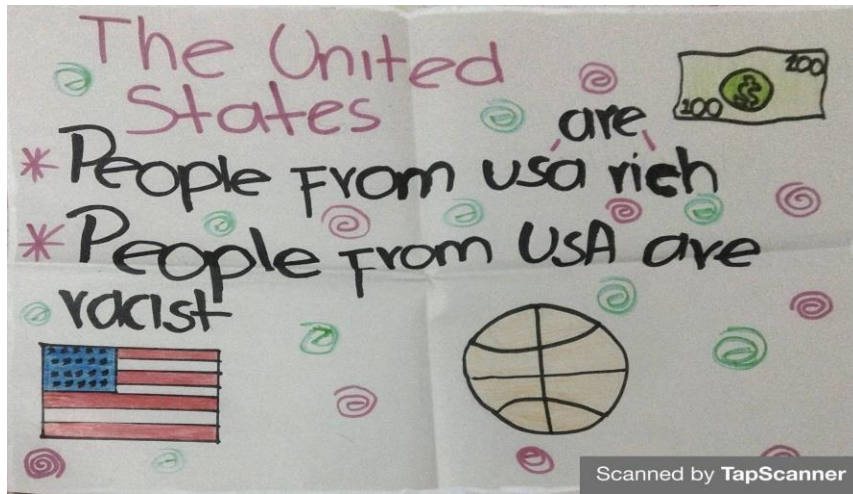 The United
States
100
100
$
are
* People From usa rich
* People From USA are
racist
Scanned by TapScanner